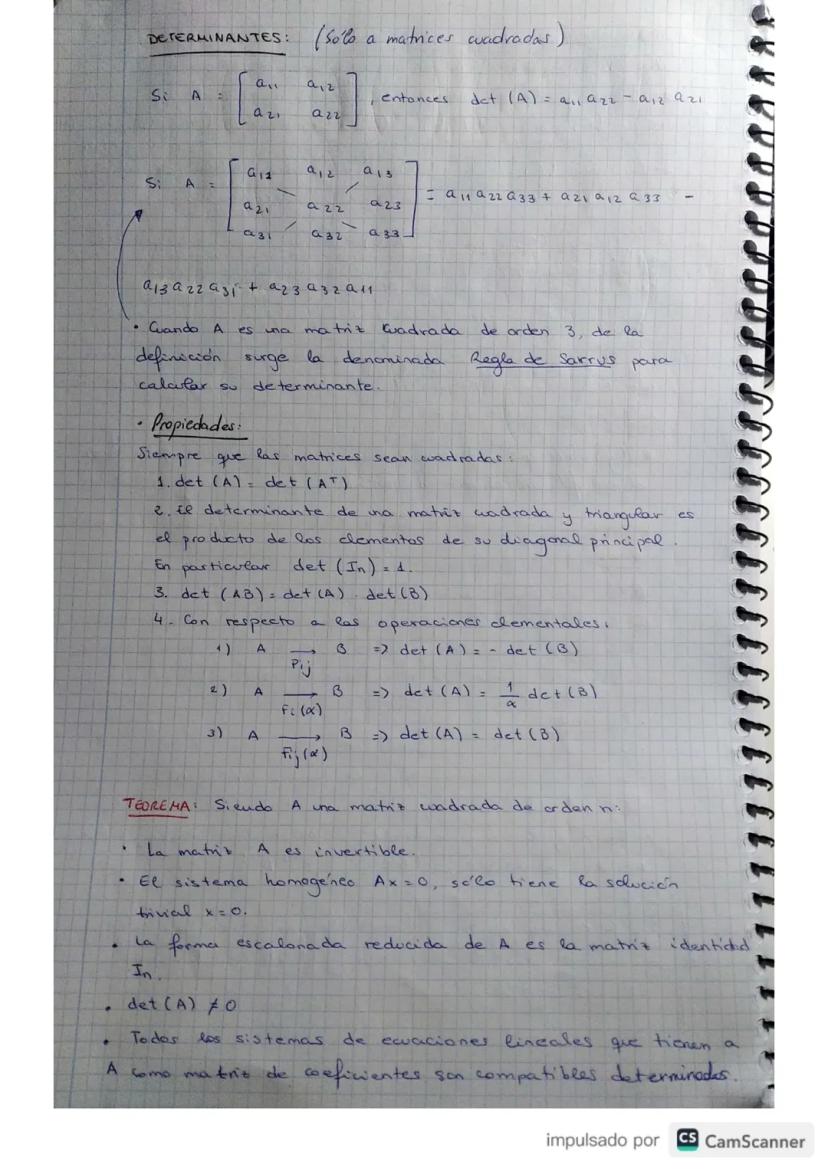 DETERMINANTES: (Sólo a matrices cuadradas)
Si A = [ a11 a12
a21 a22 ], entonces det (A) = a11 a22 - a12 a21
Si A = [ a11 a12 a13
a21 a22 a23
a31 a32 a33 ] = a11 a22 a33 + a21 a12 a33 -
a13 a22 a31 + a23 a32 a11
• Cuando A es una matriz cuadrada de orden 3, de la
definición surge la denominada Regla de Sarrus para
calcular su determinante.
• Propiedades:
Siempre que las matrices sean cuadradas:
1. det (A) = det (Aᵀ)
2. El determinante de una matriz cuadrada y triangular es
el producto de los elementos de su diagonal principal.
En particular det (In) = 1.
3. det (AB) = det (A) . det (B)
4. Con respecto a las operaciones elementales:
1) A → B => det (A) = - det (B)
Pij
2) A → B => det (A) = 1/α det (B)
Fi (α)
3) A → B => det (A) = det (B)
Fij (α)
TEOREMA: Siendo A una matriz cuadrada de orden n:
• La matriz A es invertible.
• El sistema homogéneo Ax = 0, sólo tiene la solución
trivial x = 0.
• La forma escalonada reducida de A es la matriz identidad
In.
• det (A) ≠ 0
• Todos los sistemas de ecuaciones lineales que tienen a
A como matriz de coeficientes son compatibles determinados.
impulsado por CS CamScanner